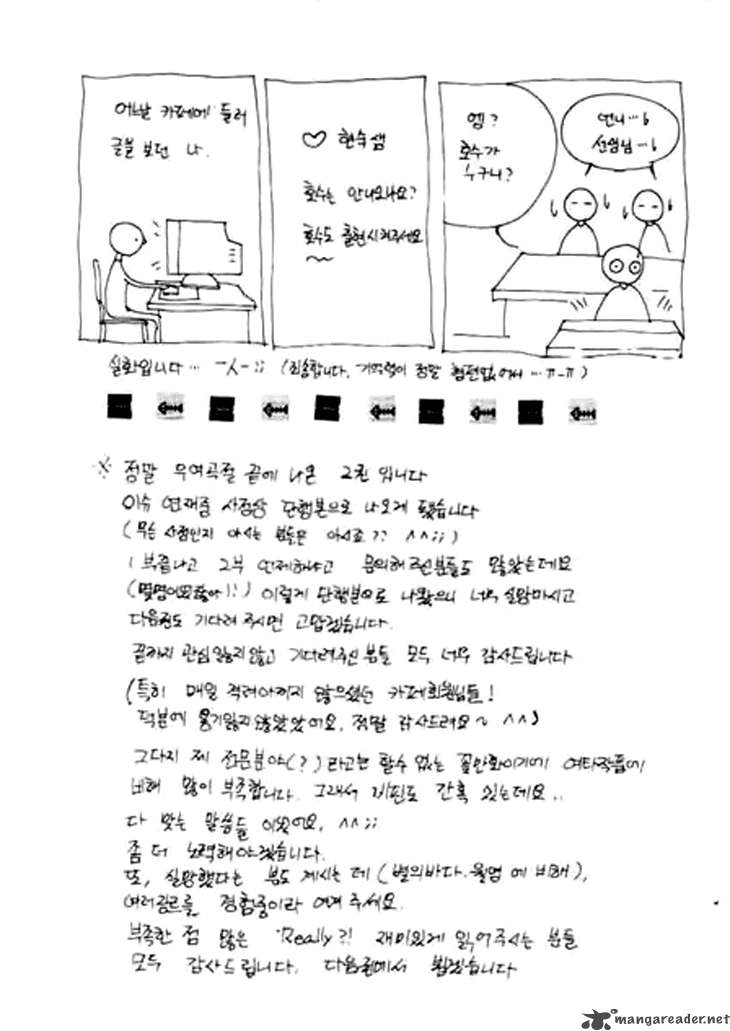 어느날 카페에 들러
글을 보던 나.
♡ 현수샘
호수는 안나오나요?
호수도 출현시켜주세요
~~
엥?
호수가
누구니?
언니…
선영님…
실화입니다… ㅡㅅㅡ;; (죄송합니다. 기억력이 정말 형편없어서 …ㅠ-ㅠ)
※ 정말 우여곡절 끝에 나온 2권 입니다
이슈 연재중 사정상 단행본으로 나오게 됐습니다
(무슨 사정인지 아시는 분들은 아시죠?? ^^;;)
1부끝나고 2부 언제하냐고 문의해주신분들도 많았는데요
이렇게 단행본으로 나왔으니 너무 실망마시고
다음권도 기다려 주시면 고맙겠습니다.
끝까지 관심잃지않고 기다려주신 분들 모두 너무 감사드립니다
(특히 매일 격려아끼지 않으셨던 카페회원님들!
덕분에 용기잃지않았었어요. 정말 감사드려요~ ^^)
그다지 제 전문분야(?)라고는 할수 없는 꽃만화이기에 여타작품에
비해 많이 부족합니다. 그래서 비판도 간혹 있는데요..
다 맞는 말씀들 이었어요. ^^;;
좀 더 노력해야겠습니다.
또, 실망했다는 분도 계시는 데 (별의바다.월영 에 비해),
여러장르를 경험중이라 여겨 주세요.
부족한 점 많은 'Really?! 재미있게 읽어주시는 분들
모두 감사드립니다. 다음권에서 뵙겠습니다
mangareader.net